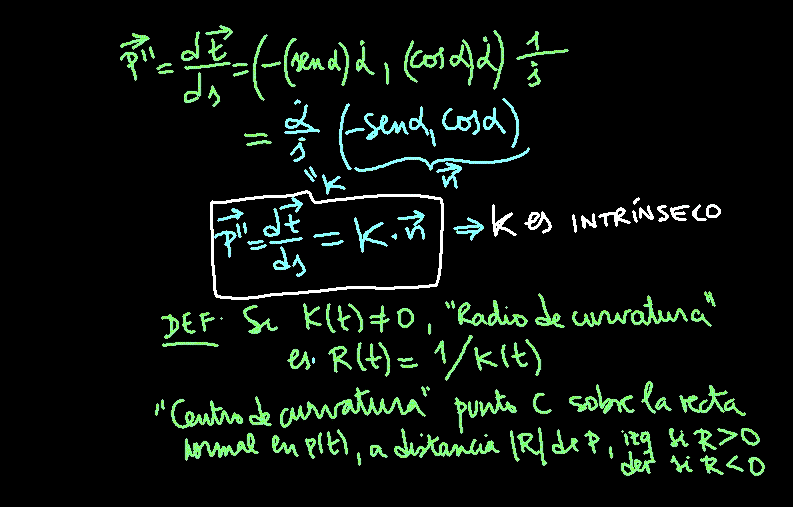 p⃗'' = dt⃗/ds = (-(sen α) α̇, (cos α) α̇) 1/ṡ
= α̇/ṡ (-sen α, cos α)
"K n⃗
p⃗'' = dt⃗/ds = K · n⃗ ⇒ K es INTRÍNSECO
DEF. Si K(t) ≠ 0, "Radio de curvatura"
es. R(t) = 1/K(t)
"Centro de curvatura" punto C sobre la recta
normal en p(t), a distancia |R| de P, izq si R > 0
der si R < 0